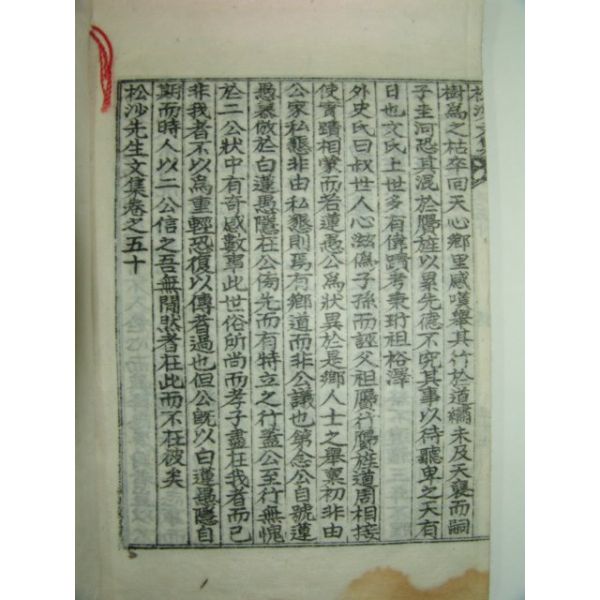 樹爲之枯卒回天心鄕里感嘆擧其行於道繡未及天褒而嗣
子圭河恐其混於贋旌以累先德不究其事以待聽卑之天有
日也文氏上世多有偉蹟考秉珩祖裕澤
外史氏曰叔世人心滋僞子孫而誣父祖贋行贋旌道周相接
使實蹟相蒙而若蓮愚公爲狀異於是鄕人士之擧稟初非由
公家私懇非由私懇則爲有鄕道而非公議也第念公自號蓮
愚慕倣於白蓮愚隱在公傍先而有特立之行蓋公至行無愧
於二公狀中有奇感數事此世俗所尚而孝子盡在我者而已
非我者不以爲重輕恐復以傳者過也但公旣以白蓮愚隱自
期而時人以二公信之吾無間然者在此而不在彼矣
松沙先生文集卷之五十